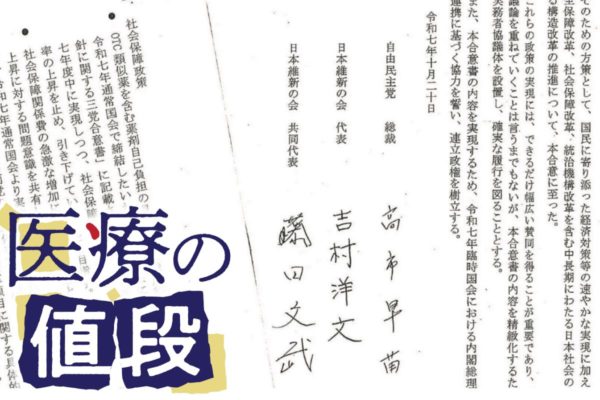 そのための方策として、国民に寄り添った経済対策等の速やかな実現に加え
保障改革、社会保障改革、統治機構改革を含む中長期にわたる日本社会の
る構造改革の推進について、本合意に至った。
これらの政策の実現には、できるだけ幅広い賛同を得ることが重要であり、
議論を重ねていくことは言うまでもないが、本合意書の内容を精緻化するた
実務者協議体を設置し、確実な履行を図ることとする。
また、本合意書の内容を実現するため、令和七年臨時国会における内閣総理
連携に基づく協力を誓い、連立政権を樹立する。
令和七年十月二十日
自由民主党 総裁 高市早苗
日本維新の会 代表 吉村洋文
日本維新の会 共同代表 藤田文武
社会保障政策
OTC類似薬を含む薬剤自己負担の
令和七年通常国会で締結したい
針に関する三党合意書」に記載
七年度中に実現しつつ、社会保障
率の上昇を止め、引き下げてい
社会保障関係費の急激な増加
上昇に対する問題意識を共有
令和七年通常国会より実
項目に関する具体的
医療の
値段